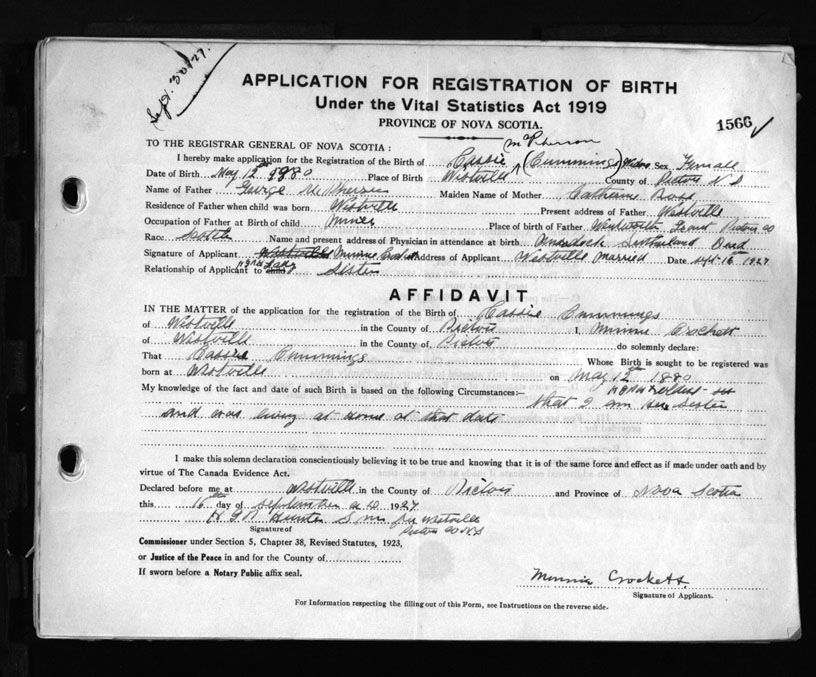 Sept. 30/27.
APPLICATION FOR REGISTRATION OF BIRTH
Under the Vital Statistics Act 1919
PROVINCE OF NOVA SCOTIA.
1566
TO THE REGISTRAR GENERAL OF NOVA SCOTIA :
McPherson
I hereby make application for the Registration of the Birth of Cassie (Cummings) Sex Female
Date of Birth May 12th 1880 Place of Birth Westville County of Pictou N S
Name of Father George McPherson Maiden Name of Mother Catherine Ross
Residence of Father when child was born Westville Present address of Father Westville
Occupation of Father at Birth of child Miner Place of birth of Father Wentworth Grant Pictou Co
Race Scotch Name and present address of Physician in attendance at birth Sutherland Dead
Signature of Applicant Westville Minnie Crockett Address of Applicant Westville Married Date Sept 16 1927
Relationship of Applicant to Sister
AFFIDAVIT
IN THE MATTER of the application for the registration of the Birth of Cassie Cummings
of Westville in the County of Pictou I, Minnie Crockett
of Westville in the County of Pictou do solemnly declare:
That Cassie Cummings Whose Birth is sought to be registered was
born at Westville on May 12th 1880
My knowledge of the fact and date of such Birth is based on the following Circumstances:—
that I am her sister
and was living at home at that date
I make this solemn declaration conscientiously believing it to be true and knowing that it is of the same force and effect as if made under oath and by
virtue of The Canada Evidence Act.
Declared before me at Westville in the County of Pictou and Province of Nova Scotia
this 16th day of September A D 1927
H G N Westville
Pictou Co N S
Signature of
Commissioner under Section 5, Chapter 38, Revised Statutes, 1923,
or Justice of the Peace in and for the County of
If sworn before a Notary Public affix seal.
Minnie Crockett
Signature of Applicant.
For Information respecting the filling out of this Form, see Instructions on the reverse side.